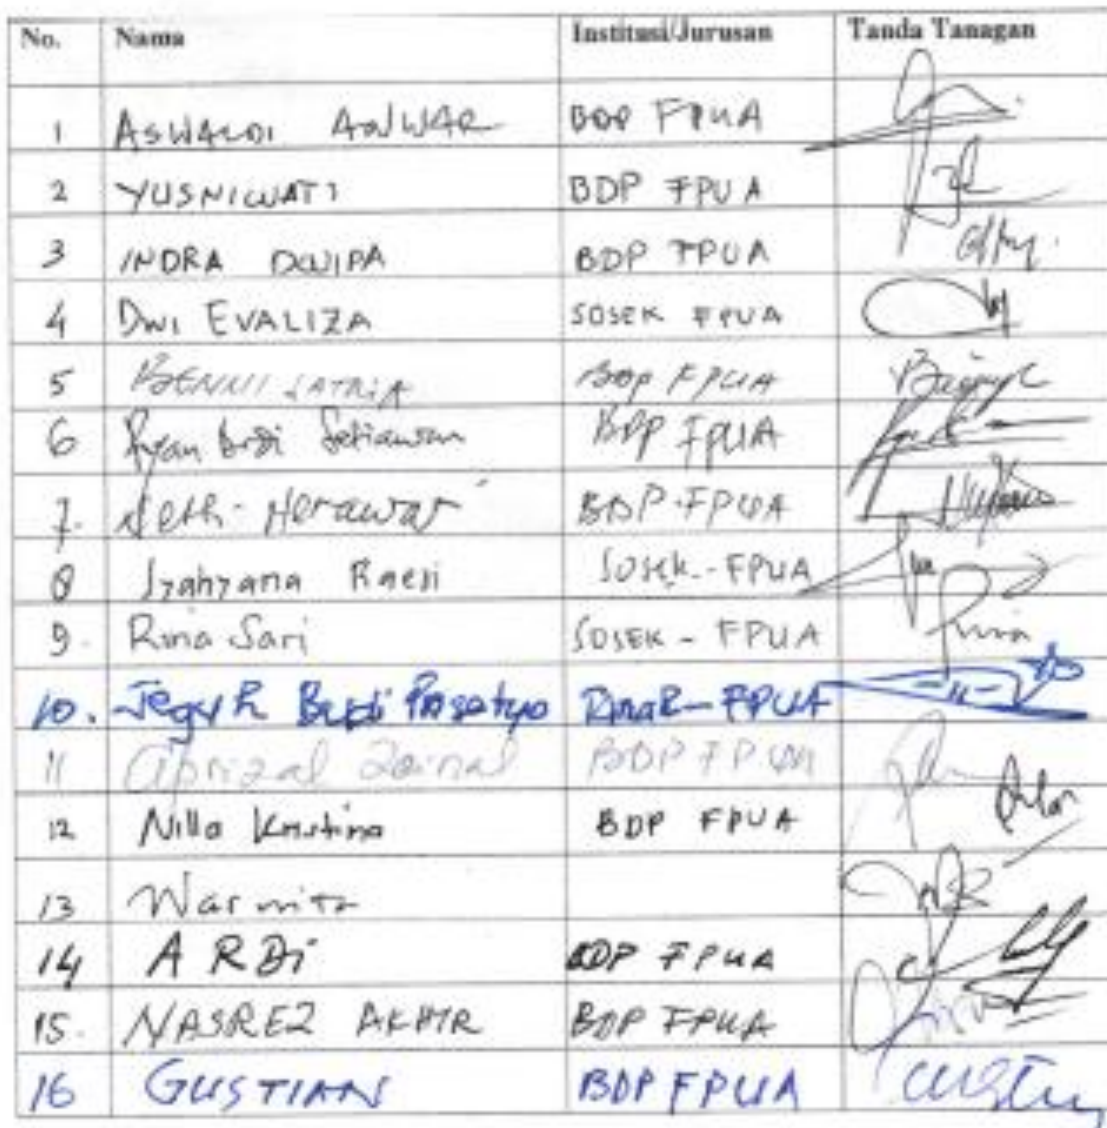 No. Nama Institusi/Jurusan Tanda Tanagan
1 ASWALDI ANWAR BDP FPUA
2 YUSNIWATI BDP FPUA
3 INDRA DWIPA BDP FPUA
4 DWI EVALIZA SOSEK FPUA
5 BENNI SATRIA BDP FPUA
6 Ryan Budi Setiawan BDP FPUA
7. Netti Herawati BDP-FPUA
8 Syahyana Raesi Sosek-FPUA
9. Rina Sari SOSEK - FPUA Rina
10. Budi Prasetyo FPUA
11 Aprizal Zainal BDP FPUA
12 Nilla Kristina BDP FPUA
13 Warnita
14 ARDi BDP FPUA
15. NASREZ AKHIR BDP FPUA
16 GUSTIAN BDP FPUA